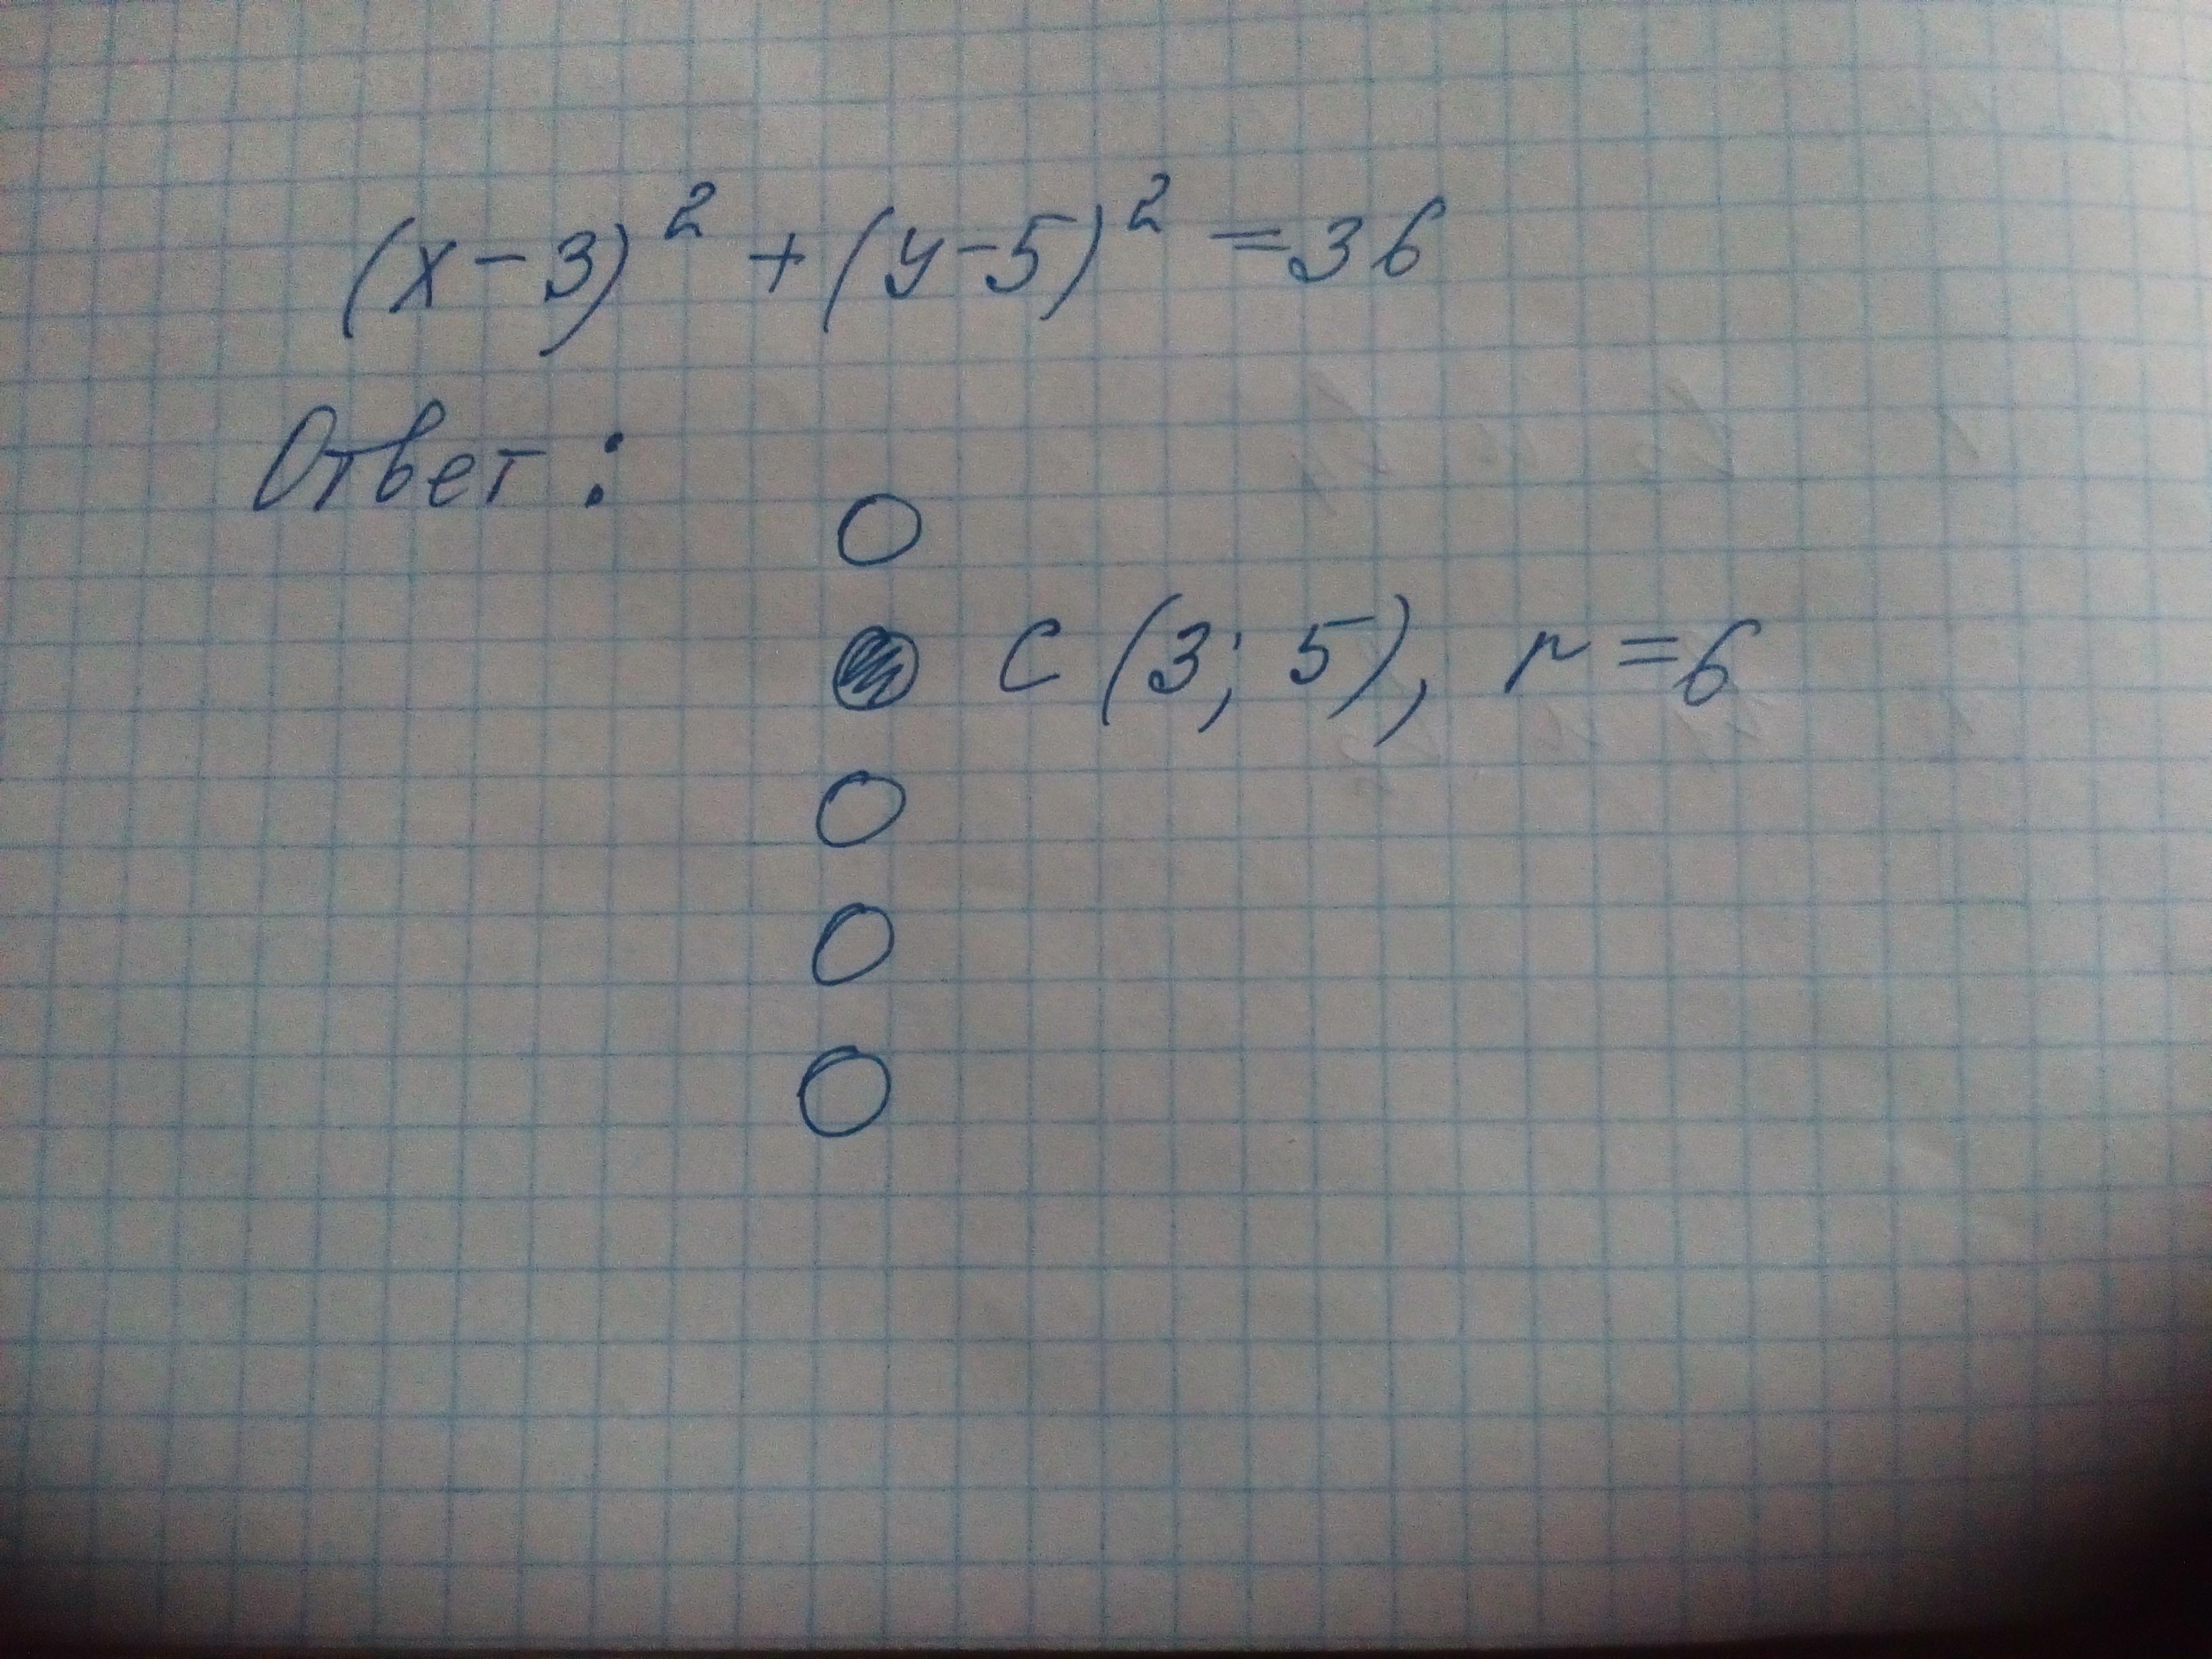 (x-3)² + (y-5)² = 36
Ответ:
C (3; 5), r = 6